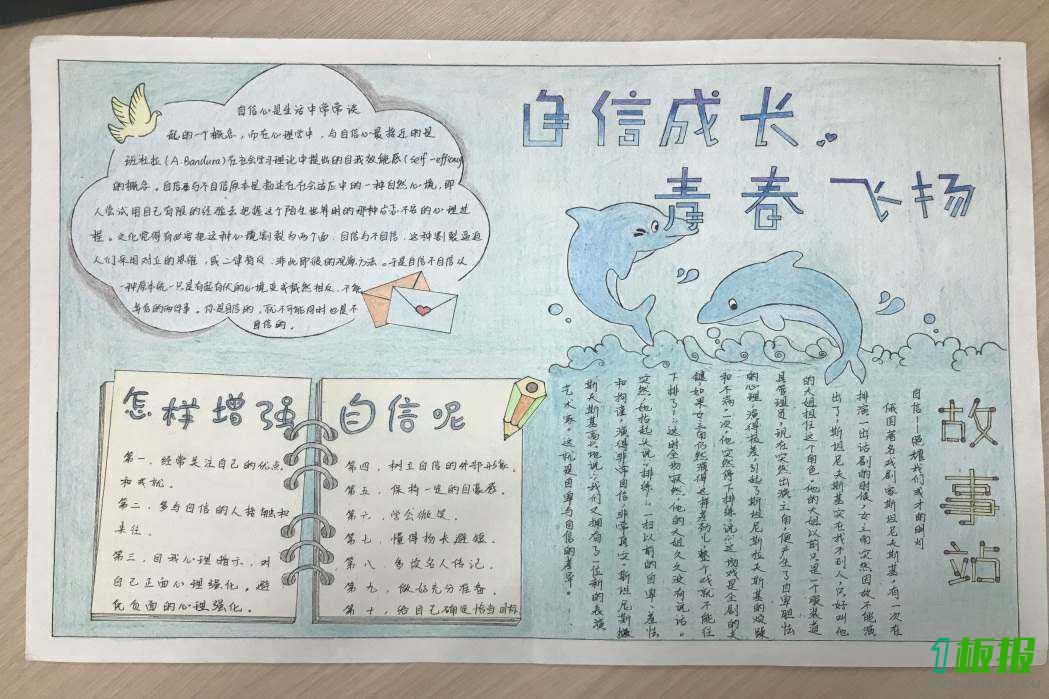 自信成长
青春飞扬
自信心是生活中常常谈
起的一个概念，而在心理学中，与自信心最接近的是
班杜拉（A.Bandura）在社会学习理论中提出的自我效能感（self-efficacy
的概念。自信与不自信原本是描述在社会适应中的一种自然心境，即
人尝试用自己有限的经验去把握这个陌生世界时的那种忐忑不安的心理过
程。文化觉得有必要把这种心境割裂为两个面，自信与不自信，这种割裂逼迫
人们采用对立的思维，或二律背反，非此即彼的观察方法。于是自信不自信从
一种原本统一只是有起有伏的心境变成截然相反，不能
共存的两件事。你是自信的，就不可能同时也是不
自信的。
怎样增强自信呢
第一，经常关注自己的优点
和成就。
第二，多与自信的人接触和
来往。
第三，自我心理暗示，对
自己正面心理强化，避
免负面的心理强化。
第四，树立自信的外部形象。
第五，保持一定的自豪感。
第六，学会微笑。
第七，懂得扬长避短。
第八，多读名人传记。
第九，做好充分准备。
第十，给自己确定恰当目标
故事站
自信——照耀我们成才的明灯
俄国著名戏剧家斯坦尼夫斯基，有一次在
排演一出话剧的时候，女主角突然因故不能演
出了，斯坦尼夫斯基实在找不到人，只好叫他
的大姐担任这个角色。他的大姐以前只是一个服装道
具管理员，现在突然出演主角，便产生了自卑胆怯
的心理，演得极差，引起了斯坦尼斯拉夫斯基的烦躁
和不满。一次，他突然停下排练，说：“这场戏是全剧的关
键，如果女主角仍然演得这样差劲儿，整个戏就不能往
下排了！”这时全场寂然，他的大姐久久没有说话。
突然，她抬起头说：“排练！”一扫以前的自卑、羞怯
和拘谨，演得非常自信，非常真实。斯坦尼斯拉
斯夫斯基高兴地说：“我们又拥有了一位新的表演
艺术家。”这就是自卑与自信的差异。
1板报